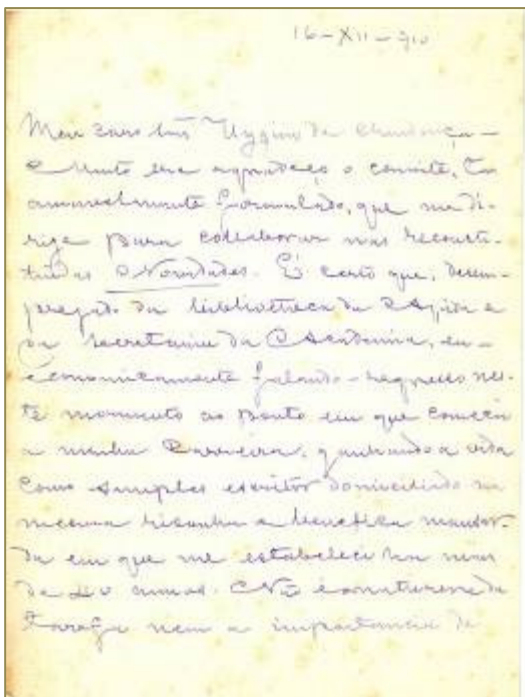 16-XII-910
Meu caro Luis Hygino de Mendonça -
Muito lhe agradeço o convite, tão
amavelmente formulado, que me di-
rige para collaborar nas reconsti-
tuidas Novidades. É certo que, desem-
pregado da bibliotheca da Ajuda e
da secretaria da Academia, eu -
economicamente falando - regresso nes-
te momento ao ponto em que comecei
a minha carreira, ganhando a vida
como simples escritor domiciliado na
mesma risonha e benefica mansar-
da em que me estabeleci ha mais
de 40 annos. Não é a natureza da
tarefa nem a importancia da